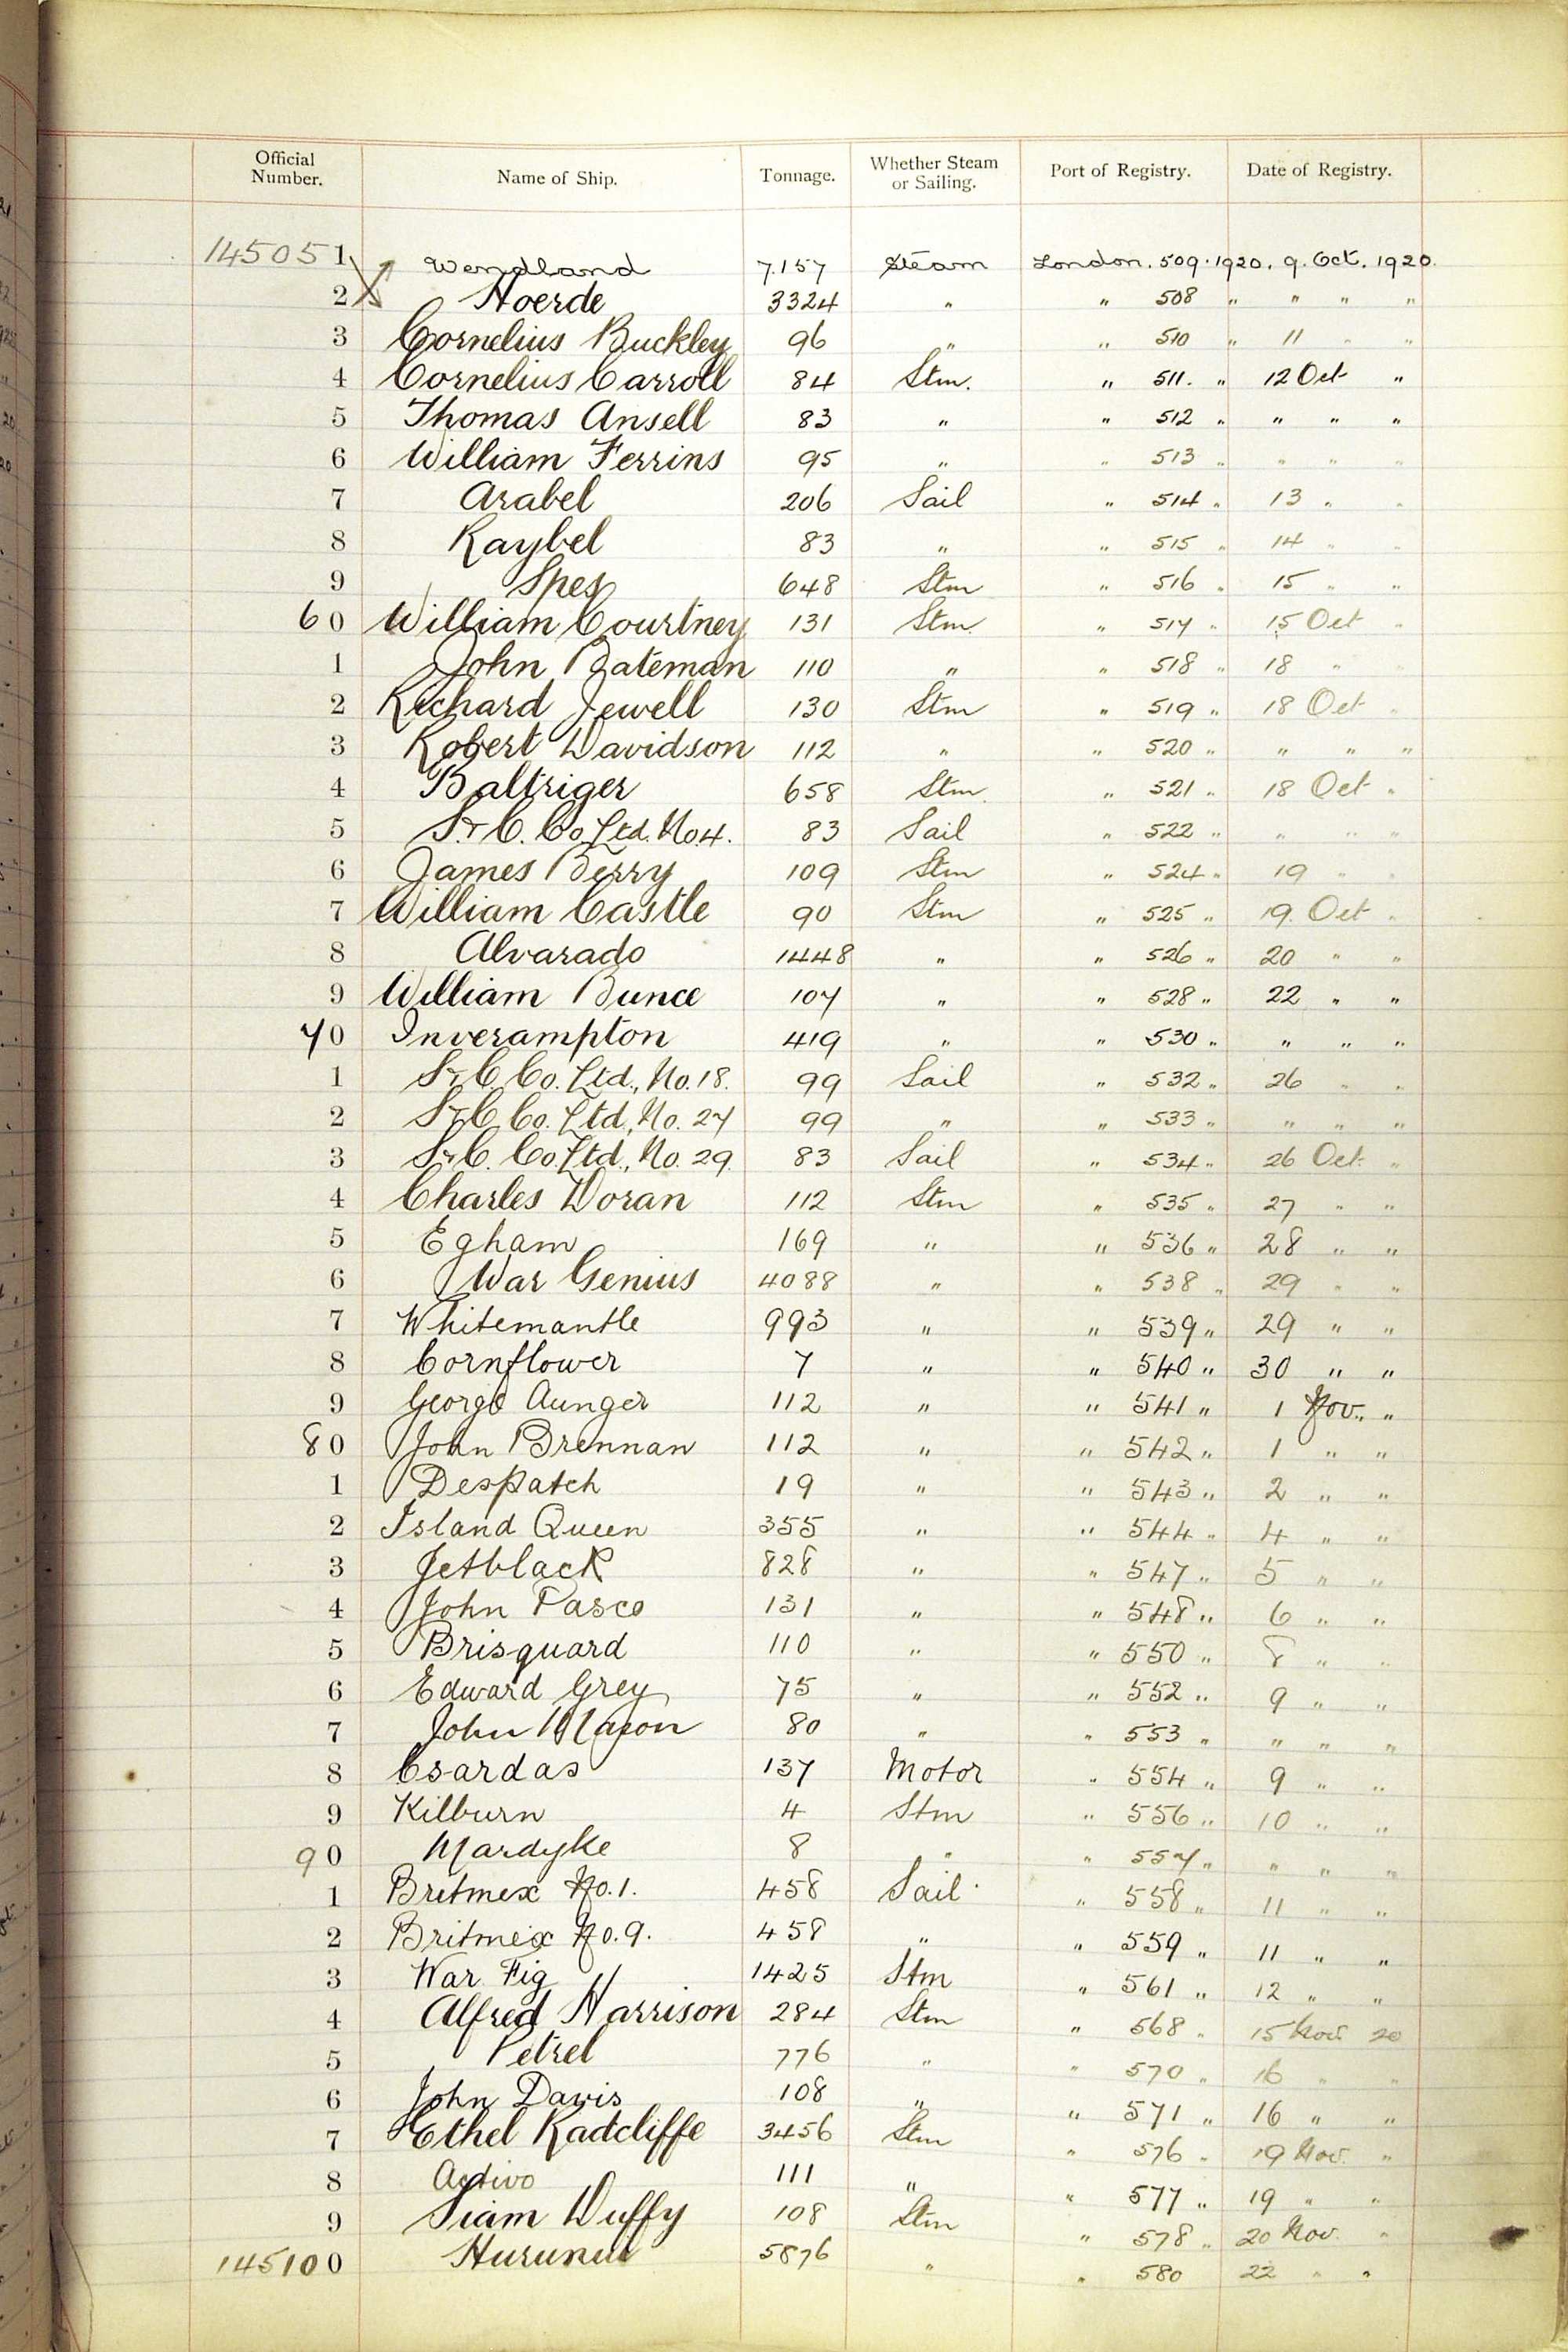 Official Number. Name of Ship. Tonnage. Whether Steam or Sailing. Port of Registry. Date of Registry.
145051 Wendland 7.157 Steam London. 509. 1920. 9. Oct. 1920.
2 Hoerde 3324 " " 508 " " " "
3 Cornelius Buckley 96 " " 510 " 11 " "
4 Cornelius Carroll 84 Stm. " 511. " 12 Oct "
5 Thomas Ansell 83 " " 512 " " " "
6 William Ferrins 95 " " 513 " " " "
7 Arabel 206 Sail " 514 " 13 " "
8 Raybel 83 " " 515 " 14 " "
9 Spes 648 Stm " 516 " 15 " "
60 William Courtney 131 Stm. " 517 " 15 Oct "
1 John Bateman 110 " " 518 " 18 " "
2 Richard Jewell 130 Stm " 519 " 18 Oct "
3 Robert Davidson 112 " " 520 " " " "
4 Baltriger 658 Stm. " 521 " 18 Oct "
5 S.&C. Co. Ltd. No4. 83 Sail " 522 " " " "
6 James Berry 109 Stm " 524 " 19 " "
7 William Castle 90 Stm " 525 " 19. Oct "
8 Alvarado 1448 " " 526 " 20 " "
9 William Bunce 107 " " 528 " 22 " "
70 Inverampton 419 " " 530 " " " "
1 S&C Co. Ltd., No. 18. 99 Sail " 532 " 26 " "
2 S&C Co. Ltd., No. 27 99 " " 533 " " " "
3 S&C. Co. Ltd., No. 29. 83 Sail " 534 " 26 Oct. "
4 Charles Doran 112 Stm " 535 " 27 " "
5 Egham 169 " " 536 " 28 " "
6 War Genius 4088 " " 538 " 29 " "
7 Whitemantle 993 " " 539 " 29 " "
8 Cornflower 7 " " 540 " 30 " "
9 George Aunger 112 " " 541 " 1 Nov. "
80 John Brennan 112 " " 542 " 1 " "
1 Despatch 19 " " 543 " 2 " "
2 Island Queen 355 " " 544 " 4 " "
3 Jetblack 828 " " 547 " 5 " "
4 John Pasco 131 " " 548 " 6 " "
5 Brisguard 110 " " 550 " 8 " "
6 Edward Grey 75 " " 552 " 9 " "
7 John Mason 80 " " 553 " " " "
8 Csardas 137 Motor " 554 " 9 " "
9 Kilburn 4 Stm " 556 " 10 " "
90 Mardyke 8 " " 557 " " " "
1 Britmex No. 1. 458 Sail " 558 " 11 " "
2 Britmex No. 9. 458 " " 559 " 11 " "
3 War Fig 1425 Stm " 561 " 12 " "
4 Alfred Harrison 284 Stm " 568 " 15 Nov. 20
5 Petrel 776 " " 570 " 16 " "
6 John Davis 108 " " 571 " 16 " "
7 Ethel Radcliffe 3456 Stm " 576 " 19 Nov. "
8 Activo 111 " " 577 " 19 " "
9 Siam Duffy 108 Stm " 578 " 20 Nov. "
145100 Hurunui 5876 " " 580 22 " "